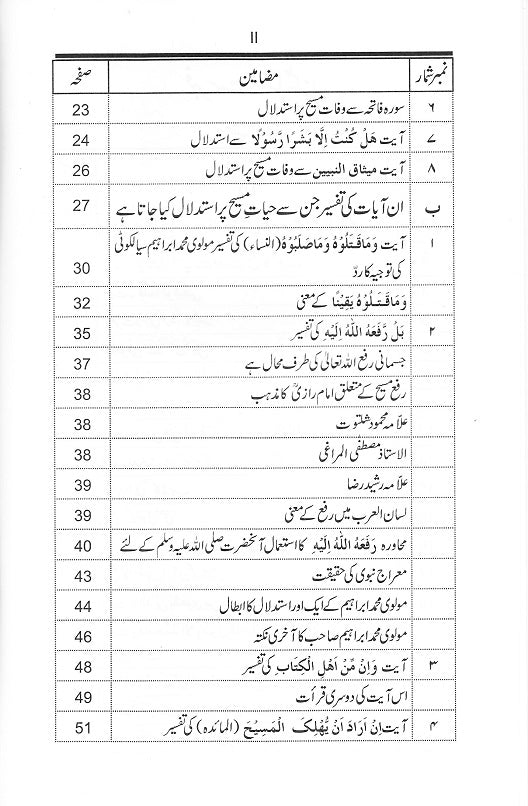 II
نمبرشمار مضامین صفحہ
۶ سورہ فاتحہ سے وفات مسیح پر استدلال 23
۷ آیت هَلْ كُنْتُ اِلَّا بَشَرًا رَّسُوْلًا سے استدلال 24
۸ آیت میثاق النبیین سے وفات مسیح پر استدلال 26
ب ان آیات کی تفسیر جن سے حیاتِ مسیح پر استدلال کیا جاتا ہے 27
۱ آیت وَمَا قَتَلُوْهُ وَمَا صَلَبُوْهُ (النساء) کی تفسیر مولوی محمد ابراہیم سیالکوٹی
کی توجیہ کا ردّ 30
وَمَا قَتَلُوْهُ يَقِيْنًا کے معنی 32
۲ بَلْ رَّفَعَهُ اللّٰهُ اِلَيْهِ کی تفسیر 35
جسمانی رفع اللہ تعالیٰ کی طرف محال ہے 37
رفع مسیح کے متعلق امام رازیؒ کا مذہب 38
علاّمہ محمود شلتوت 38
الاستاذ مصطفی المراغی 38
علاّمہ رشید رضا 39
لسان العرب میں رفع کے معنی 39
محاورہ رَفَعَهُ اللّٰهُ اِلَيْهِ کا استعمال آنحضرت صلی اللہ علیہ وسلم کے لئے 40
معراج نبوی کی حقیقت 43
مولوی محمد ابراہیم کے ایک اور استدلال کا ابطال 44
مولوی محمد ابراہیم صاحب کا آخری نکتہ 46
۳ آیت وَاِنْ مِّنْ اَهْلِ الْكِتَابِ کی تفسیر 48
اس آیت کی دوسری قرأت 49
۴ آیت اِنْ اَرَادَ اَنْ يُّهْلِكَ الْمَسِيْحَ (المائدہ) کی تفسیر 51